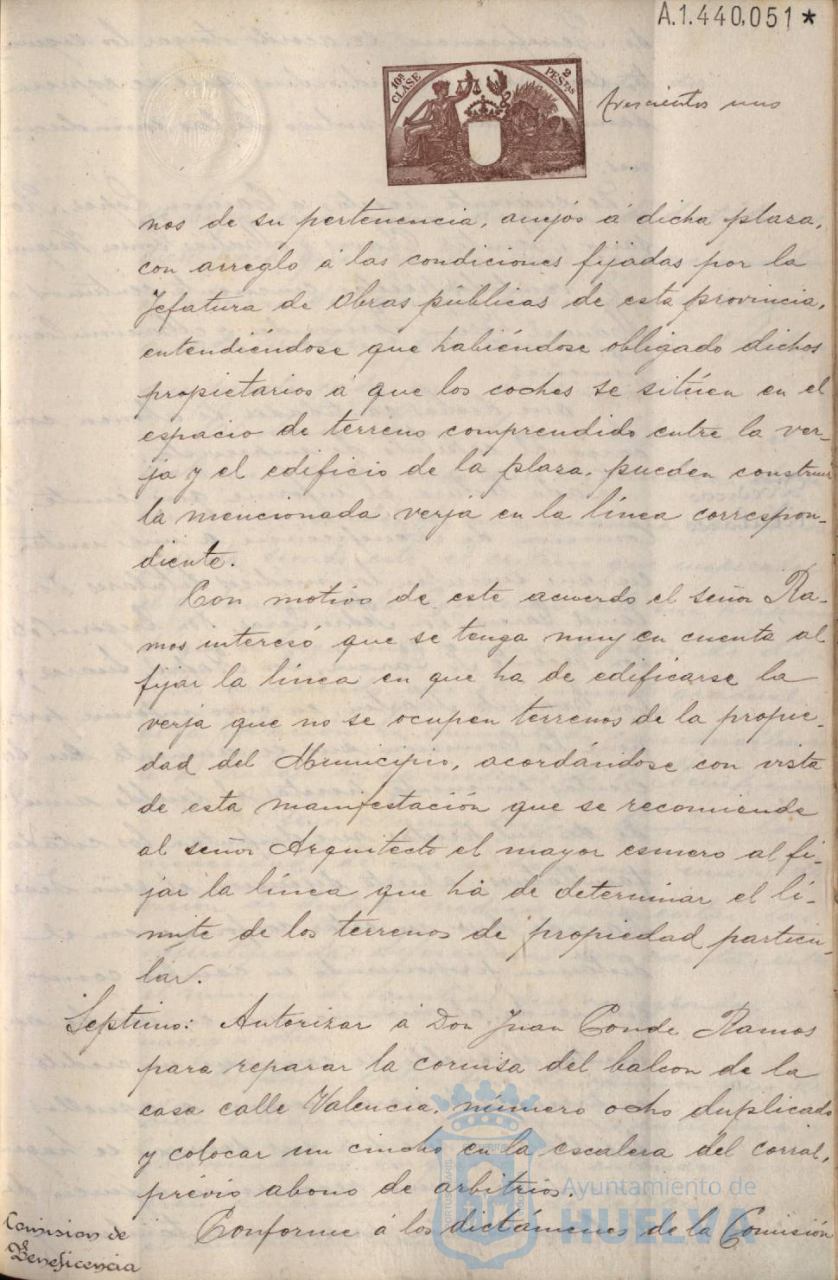 A.1.440,051 *
10ª CLASE
2 PESTAS
trescientos uno
nos de su pertenencia, anejos á dicha plaza,
con arreglo á las condiciones fijadas por la
Jefatura de Obras públicas de esta provincia,
entendiéndose que habiéndose obligado dichos
propietarios á que los coches se sitúen en el
espacio de terreno comprendido entre la ver-
ja y el edificio de la plaza, pueden construir
la mencionada verja en la línea correspon-
diente.
Con motivo de este acuerdo el señor Ra-
mos interesó que se tenga muy en cuenta al
fijar la línea en que ha de edificarse la
verja que no se ocupen terrenos de la propie-
dad del Municipio, acordándose con vista
de esta manifestación que se recomiende
al señor Arquitecto el mayor esmero al fi-
jar la línea que há de determinar el lí-
mite de los terrenos de propiedad particu-
lar.
Septimo: Autorizar á Don Juan Conde Ramos
para reparar la cornisa del balcon de la
casa calle Valencia, número ocho duplicado
y colocar un cincho en la escalera del corral,
previo abono de arbitrios.
Comision de
Beneficencia
Conforme á los dictámenes de la Comisión
Ayuntamiento de
HUELVA